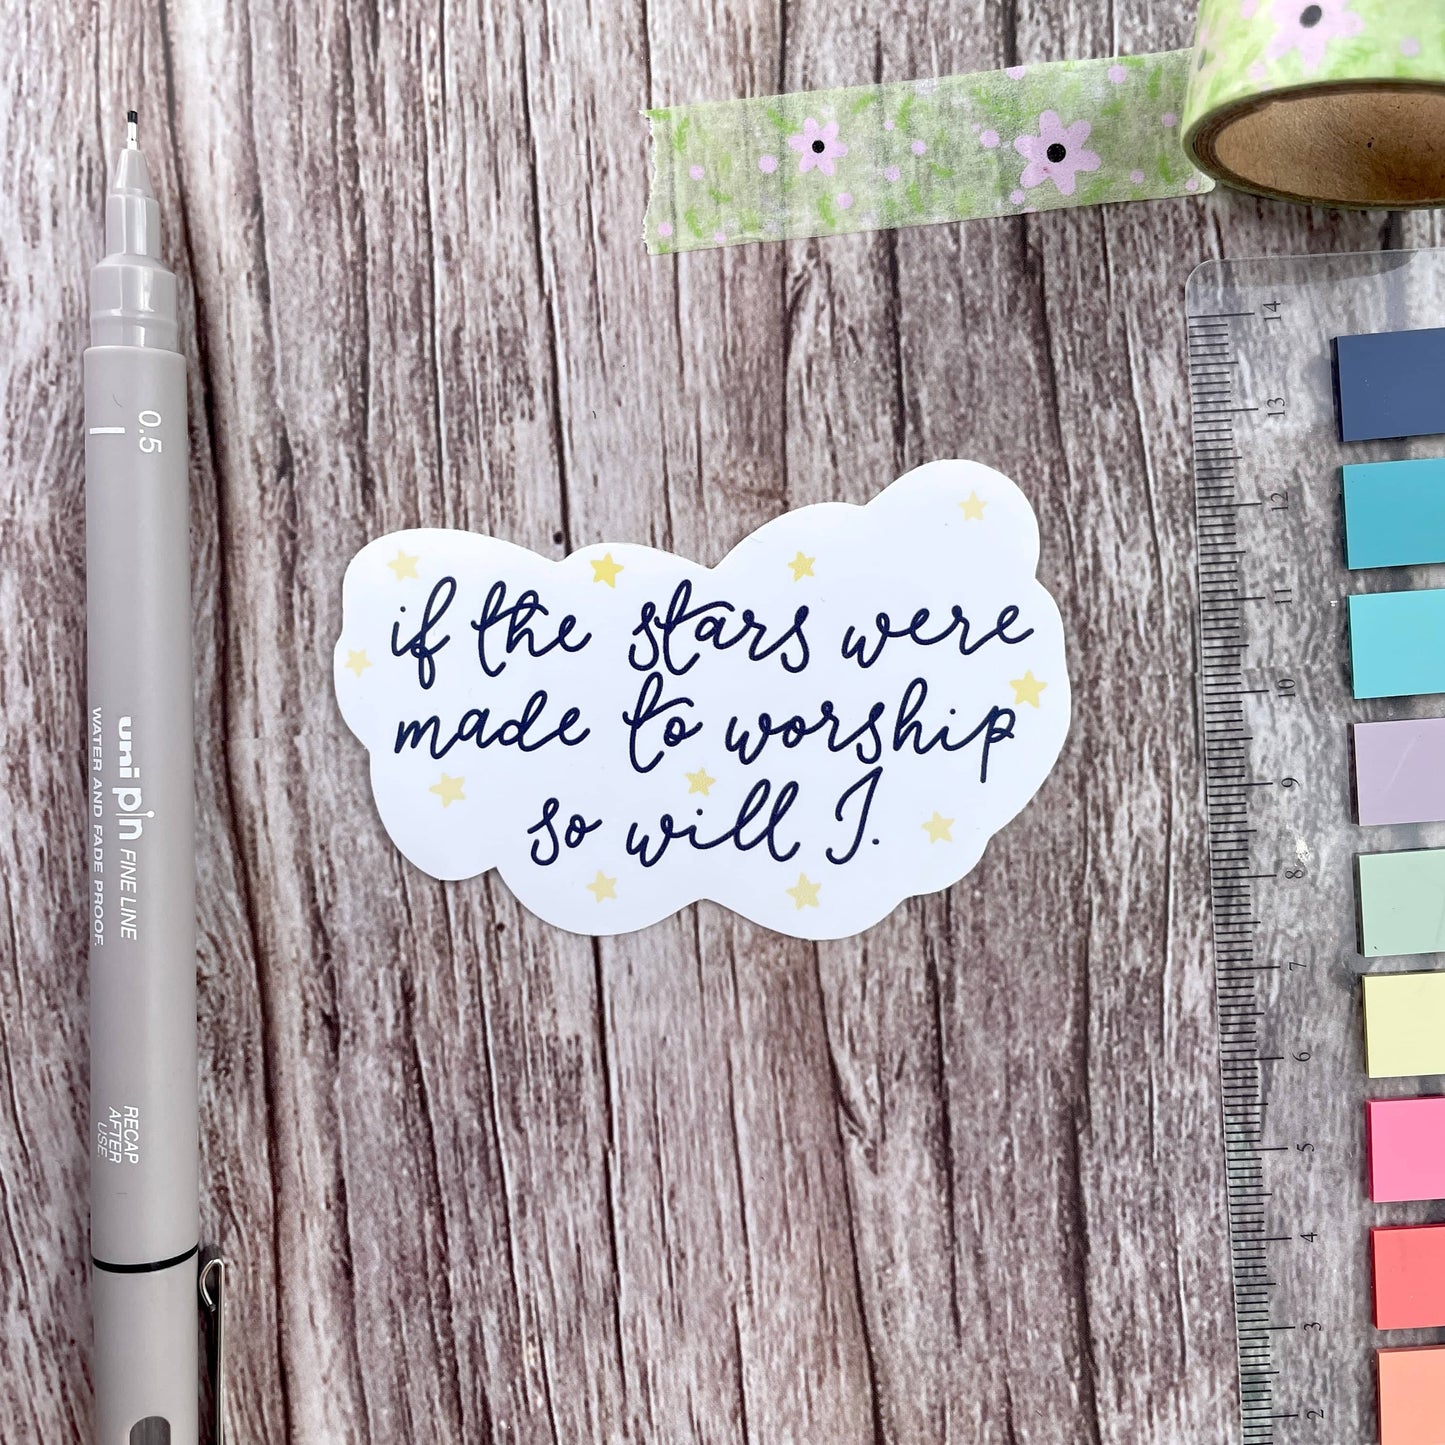 if the stars were
made to worship
so will I.
0.5
uni pin FINE LINE
WATER AND FADE PROOF.
RECAP
AFTER
USE
14
13
12
11
10
9
8
7
6
5
4
3
2